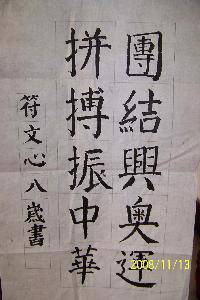 團結興奧運
拼搏振中華
符文心八歲書
2008/11/13